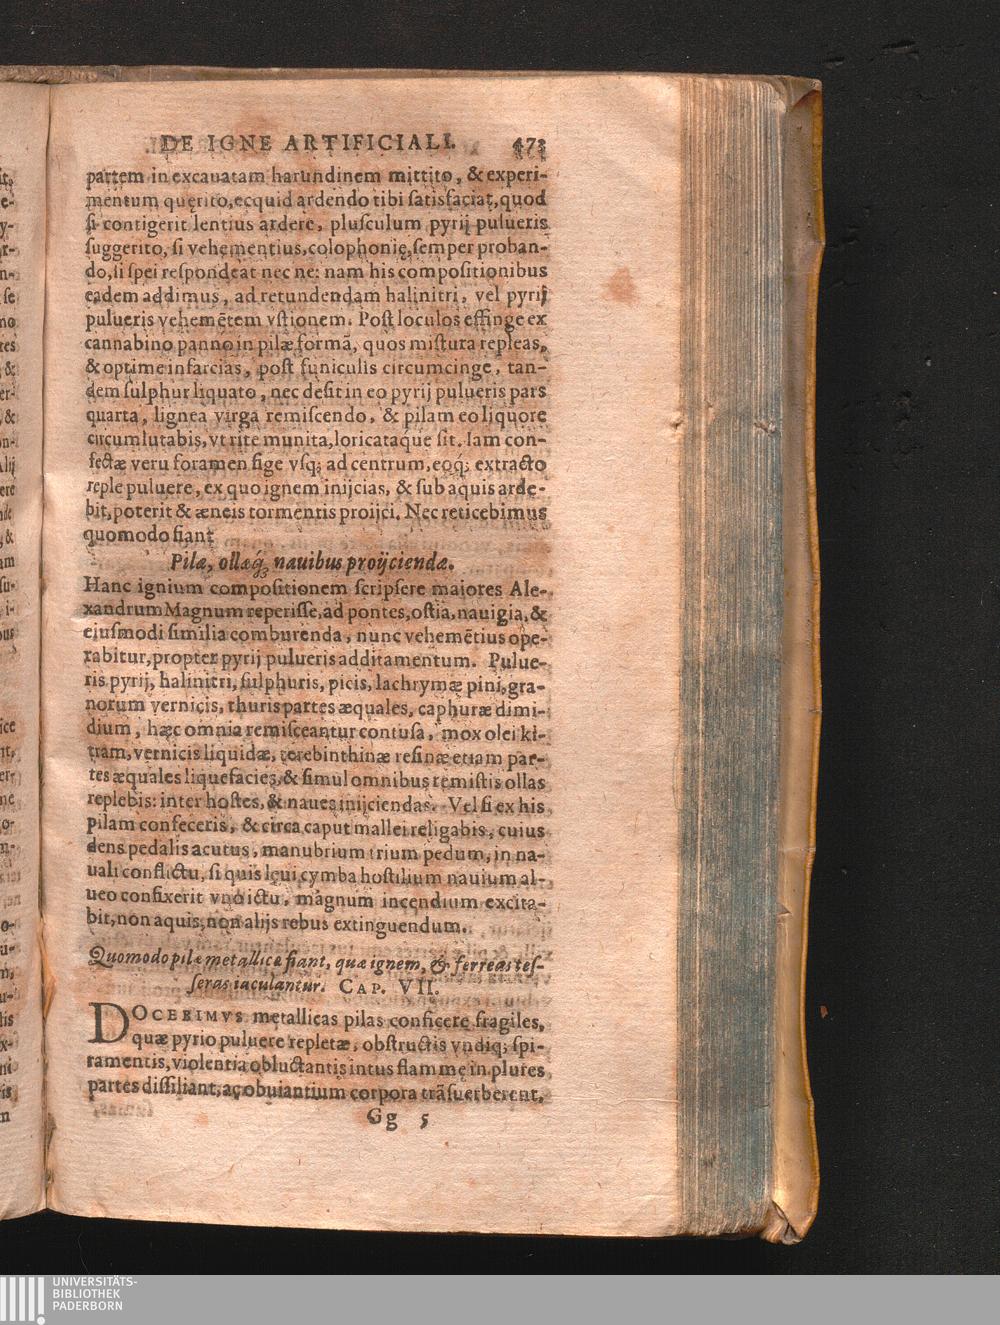 DE IGNE ARTIFICIALI. 473
partem in excauatam harundinem mittito, & experi-
mentum quęrito, ecquid ardendo tibi satisfaciat, quod
si contigerit lentius ardere, plusculum pyrij pulueris
suggerito, si vehementius, colophonię, semper proban-
do, si spei respondeat nec ne: nam his compositionibus
eadem addimus, ad retundendam halinitri, vel pyrij
pulueris vehemẽtem vstionem. Post loculos effinge ex
cannabino panno in pilæ formã, quos mistura repleas,
& optime infarcias, post funiculis circumcinge, tan-
dem sulphur liquato, nec desit in eo pyrij pulueris pars
quarta, lignea virga remiscendo, & pilam eo liquore
circumlutabis, vt rite munita, loricataque sit. Iam con-
fectæ veru foramen fige vsq; ad centrum, eoq́; extracto
reple puluere, ex quo ignem inijcias, & sub aquis arde-
bit, poterit & æneis tormentis proijci. Nec reticebimus
quomodo fiant
Pilæ, ollæq́; nauibus proijciendæ.
Hanc ignium compositionem scripsere maiores Ale-
xandrum Magnum reperisse, ad pontes, ostia, nauigia, &
eiusmodi similia comburenda, nunc vehemẽtius ope-
rabitur, propter pyrij pulueris additamentum. Pulue-
ris pyrij, halinitri, sulphuris, picis, lachrymæ pini, gra-
norum vernicis, thuris partes æquales, caphuræ dimi-
dium, hæc omnia remisceantur contusa, mox olei ki-
tram, vernicis liquidæ, terebinthinæ resinæ etiam par-
tes æquales liquefacies, & simul omnibus remistis ollas
replebis: inter hostes, & naues inijciendas. Vel si ex his
pilam confeceris, & circa caput mallei religabis, cuius
dens pedalis acutus, manubrium trium pedum, in na-
uali conflictu, si quis leui cymba hostilium nauium al-
ueo confixerit vno ictu, magnum incendium excita-
bit, non aquis, non alijs rebus extinguendum.
Quomodo pilæ metallicæ fiant, quæ ignem, & ferreas tes-
seras iaculantur. CAP. VII.
DOCEBIMVS metallicas pilas conficere fragiles,
quæ pyrio puluere repletæ, obstructis vndiq; spi-
ramentis, violentia obluctantis intus flammę in plures
partes dissiliant, aç obuiantium corpora trãsuerberent,
Gg 5
UNIVERSITÄTS-
BIBLIOTHEK
PADERBORN